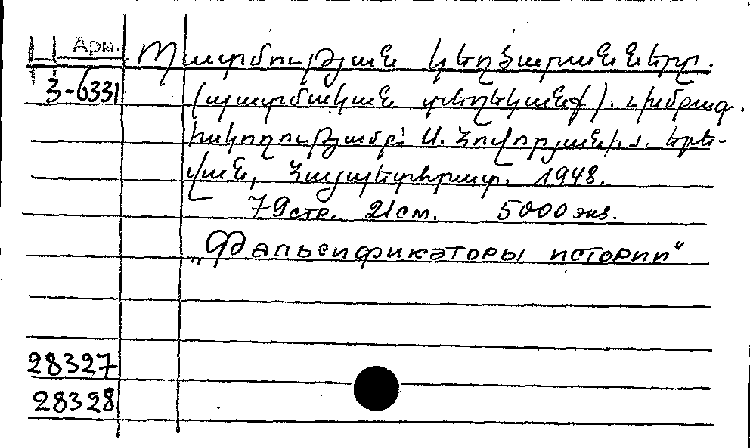 Арм.
Պատմության կեղծարարները.
3-6331
(պատմական տեղեկանք). խմբագ.
հակողությամբ՝ Ս. Հովորյանի.
Երե-
վան, Հայպետհրատ. 1948.
79 стр. 21 см. 5000 экз.
„Фальсификаторы истории"
28327
28328